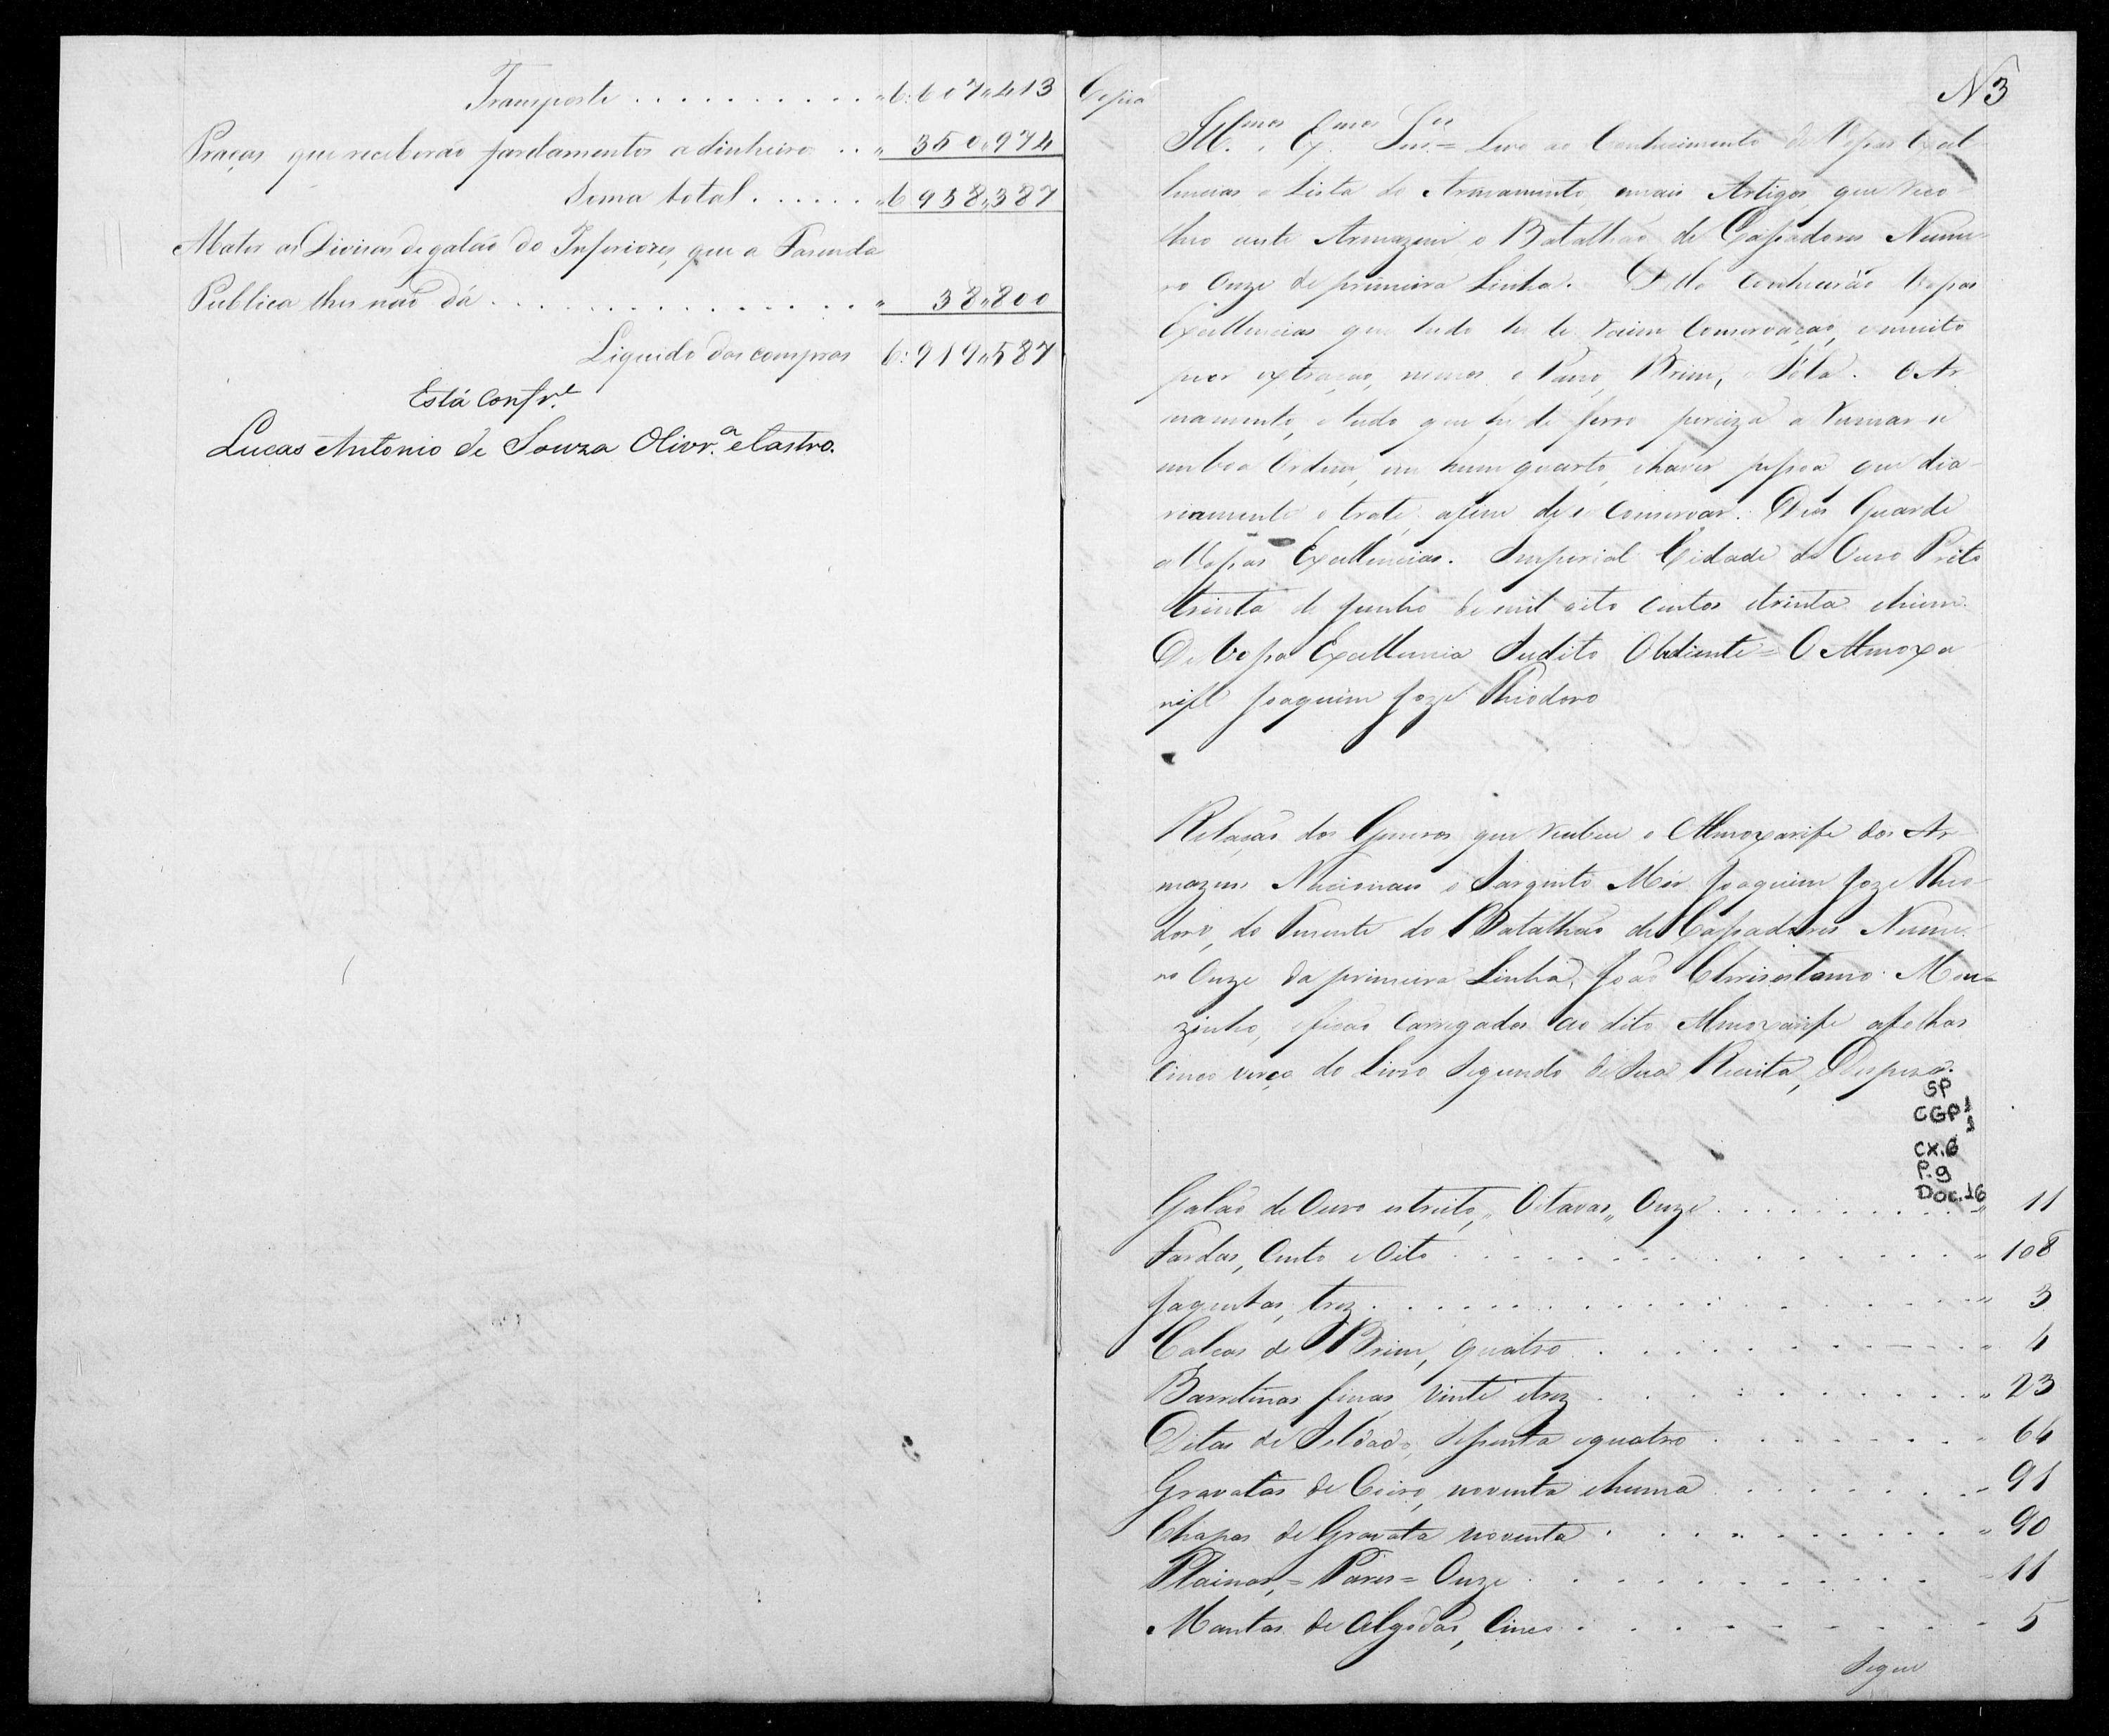 Transporte . . . . . . . . . . „6:607„413
Praças que receberão fardamentos a dinheiro . . „ 350„974
Soma total . . . . . . „6 958„387
Abate as Divisas de galão do Inferiores, que a Fazenda
Publica lhes não dá . . . . . . . . . . . . . . „ 38„800
Liquido das compras 6:919„587
Está Confr.e
Lucas Antonio de Souza Olivr.a e Castro.
Copia
N 3
Ill.mos e Ex.mos Snr.es = Levo ao Conhecimento de Vossas Excel-
lencias a Lista do Armamento, emais Artigos, que reco-
lheo neste Armazem o Batalhão de Cassadores Nume-
ro Onze de primeira Linha. Della Conhecerão Vossas
Excellencias que tudo he de roim Conservação, e muito
pior extração, menos o Pano, Brim, e Sóla. O Ar-
mamento, e tudo que he de ferro perciza arrumar se
em boa Ordem, em hum quarto, e haver pessoa que dia-
riamente o trate, afim de se Conservar. Deos Guarde
a Vossas Excellencias. Imperial Cidade do Ouro Preto
trinta de Junho de mil oito centos etrinta ehum.
De Vossa Excellencia Sudito Obediente = O Almoxa-
rife Joaquim Joze Thiodoro
Relação dos Generos que recebeu o Almoxarife dos Ar-
mazens Nacionais o Sargento Mór Joaquim Joze Thio-
doro, do Tenente do Batalhão de Cassadores Nume-
ro Onze da primeira Linha, João Chrisostamo Mou-
zinho, e ficão Carregados ao dito Almoxarife afolhas
Cinco verço do Livro Segundo de Sua Receita, e Despeza.
SP
CGP1
1
CX.6
P.9
Doc.16
Galão de Ouro estreito, „ Oitavas „ Onze . . . . . . . . . . „ 11
Fardas, Cento e Oito . . . . . . . . . . . . . . „ 108
Jaquetas, trez . . . . . . . . . . . . . . . . „ 3
Calcas de Brim, quatro . . . . . . . . . . . „ 4
Barretinas finas, vinte etrez . . . . . . . . . . „ 23
Ditas de Soldado, Sessenta equatro . . . . . . . . 64
Gravatas de Coiro, noventa ehuma . . . . . . . . 91
Chapas de Gravata noventa . . . . . . . . . . „ 90
Plainas, = Pares = Onze . . . . . . . . . . . 11
Mantas de Algodão, Cinco . . . . . . . . . . 5
Segue